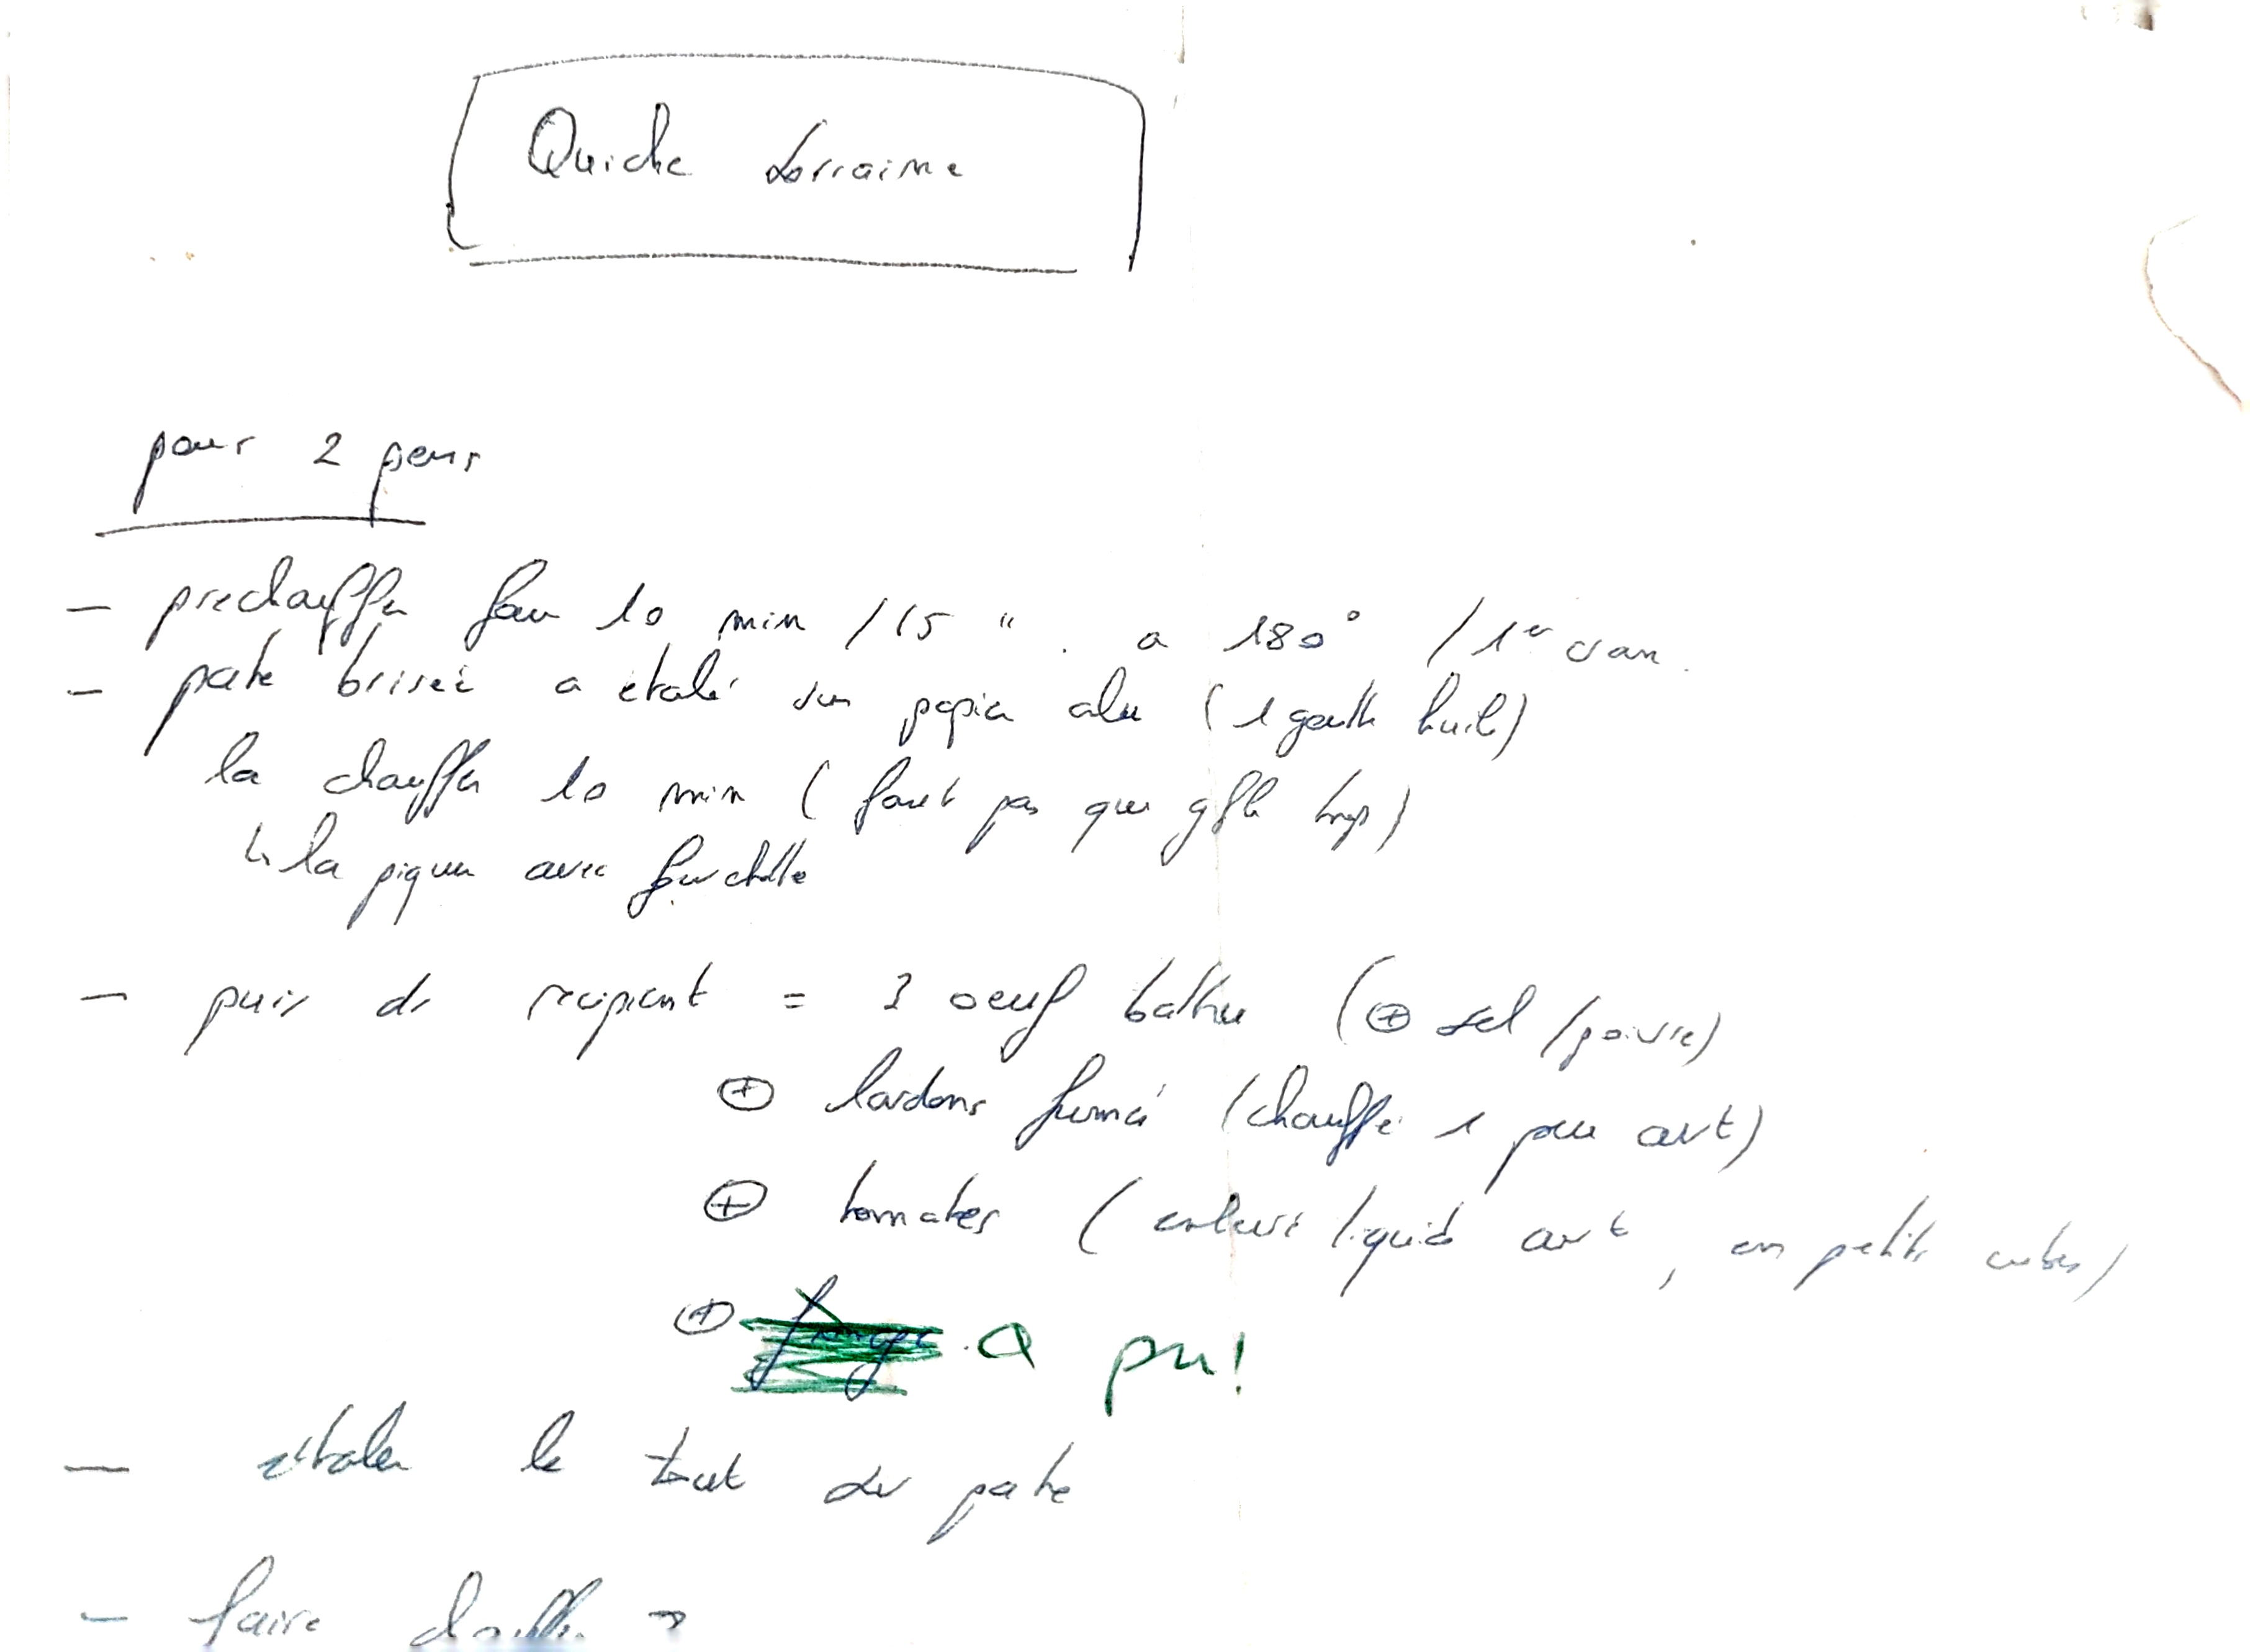 Quiche Lorraine
pour 2 pers
- prechauffer four 10 min / 15 " a 180° / 1er
- pate briseé a étalé sur papier alu ( 1 goutte huile)
la chauffer 10 min ( faut pas que gfle trop)
↳ la piquer avec fourchette
- puis ds recipient = 3 oeuf battu ( ⊕ sel / poivre)
⊕ lardons fumé (chauffé 1 peu avt)
⊕ tomates ( enlever liquid avt, en petits cubes)
⊕ fromage a pu!
- étaler le tout sur pate
- faire